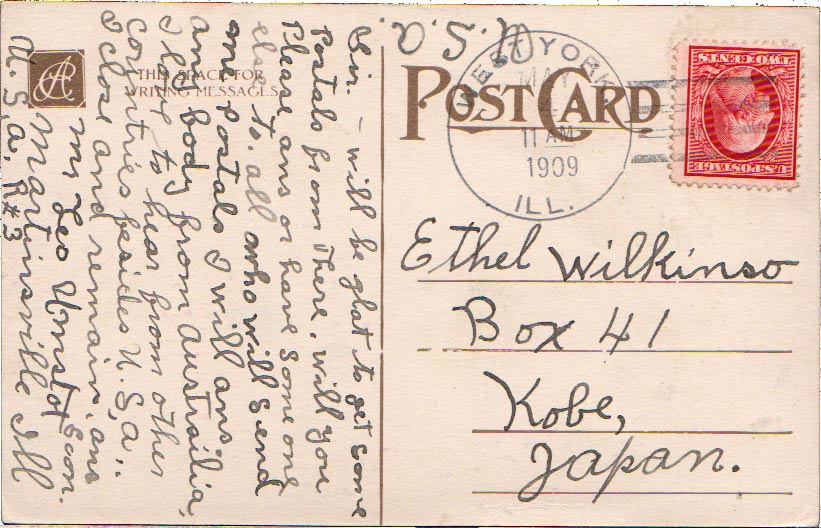 U.S.a.
POST CARD
WEST YORK
MAY
11 AM
1909
ILL.
U.S. POSTAGE
TWO CENTS
THIS SPACE FOR
WRITING MESSAGES
Sir. - will be glat to get some
Postals from There, will you
Please ans or have some one
else to, all who will send
postals I will ans.
any body from Austrailia,
I to hear from other
Countries besides U.S,a..
I close and remain, ans
Mr Leo Umstot soon.
Martinsville Ill
U.S,a. R#3
Ethel Wilkinso
Box 41
Kobe,
Japan.